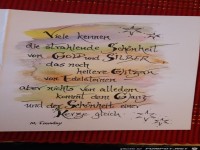 Viele kennen
die strahlende Schönheit
von GOLD und SILBER
das noch
hellere Glitzern
von Edelsteinen
aber nichts von alledem
kommt dem Glanz
und der Schönheit einer
Kerze gleich